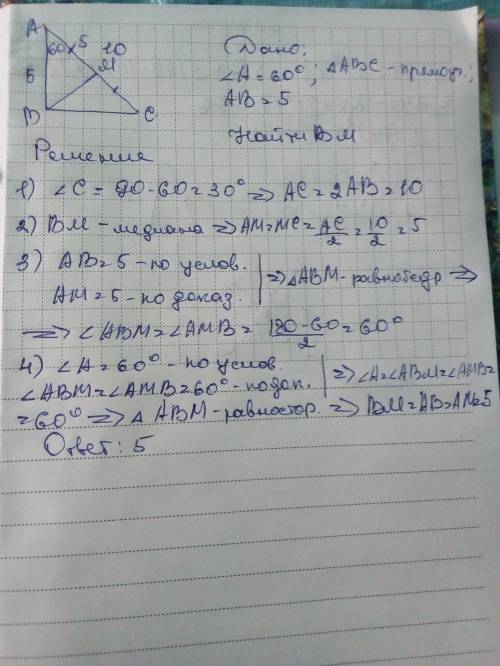 A
60 5 10
M
5
B C
Дано:
∠A = 60°; △ABC - прямоуг.;
AB = 5
Найти BM
Решение
1) ∠C = 90-60=30° ⇒ AC=2AB=10
2) BM - медиана ⇒ AM=MC=AC/2=10/2=5
3) AB=5 - по услов.
AM=5 - по доказ. | ⇒ △ABM - равнобедр ⇒
⇒ ∠ABM=∠AMB= (180-60)/2=60°
4) ∠A=60° - по услов.
∠ABM=∠AMB=60° - по док. | ⇒ ∠A=∠ABM=∠AMB=
=60° ⇒ △ABM - равностор. ⇒ BM=AB=AM=5
Ответ: 5